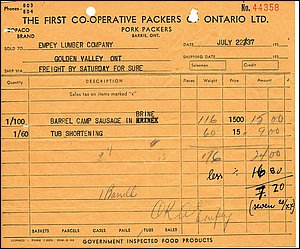 Phones: 803
804
No. 44358
COPACO BRAND
THE FIRST CO-OPERATIVE PACKERS OF ONTARIO LTD.
PORK PACKERS
BARRIE, ONT.
SOLD TO EMPEY LUMBER COMPANY JULY 22/37 193
GOLDEN VALLEY ONT
SHIP VIA FREIGHT BY SATURDAY FOR SURE Salesman Credit
DESCRIPTION
Sales tax on items marked "x"
BRINE
1/100 BARREL CAMP SAUSAGE IN 116 1500 15 00
1/60 TUB SHORTENING 60 15 9 00
176 24 00
less 16 80
1 Barrell 7.20
OK A Empey
BASKETS PARCELS CASES OUTLETS BARRELS TUBS
COPACO FORM
GOVERNMENT INSPECTED FOOD PRODUCTS